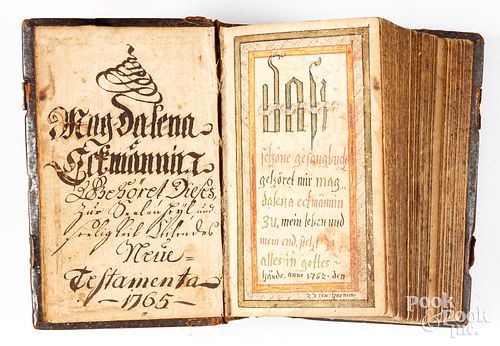 Magdalena
Eckmännin
Gehöret Dieses
Zur Seelenheyl und
seeligkeit dienendes
Neue=
Testamenta
- 1765 -
daß
schöne gesangbuch
gehöret mir mag=
dalena eckmännin
zu, mein leben und
mein end, steht ja
alles in gottes
hände, anno 1762. den
Pook
& Pook
Inc.